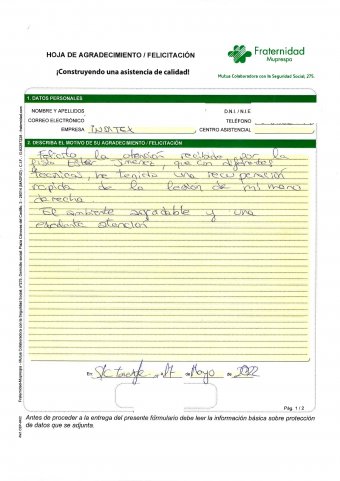 HOJA DE AGRADECIMIENTO / FELICITACIÓN
Fraternidad
Muprespa
¡Construyendo una asistencia de calidad!
Mutua Colaboradora con la Seguridad Social, 275.
1. DATOS PERSONALES
NOMBRE Y APELLIDOS
D.N.I./N.I.E
CORREO ELECTRÓNICO
TELÉFONO
EMPRESA INSITEX
CENTRO ASISTENCIAL
2. DESCRIBA EL MOTIVO DE SU AGRADECIMIENTO / FELICITACIÓN
Felicito la atención recibida por la
fisio Ester Jiménez, que con diferentes
tecnicas, he tenido una recuperación
rapida de la lesion de mi mano
derecha.
El ambiente agradable y una
atención
En a 17 de Mayo de 2022
Pág. 1 / 2
Antes de proceder a la entrega del presente formulario debe leer la información básica sobre protección
de datos que se adjunta.